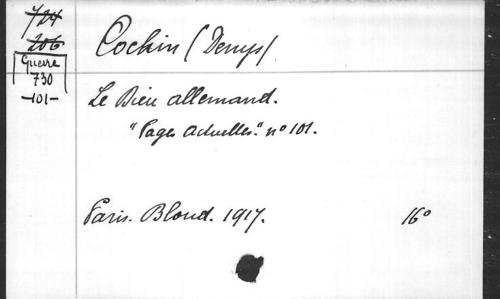 724
206
Guerre
730
-101-
Cochin (Denys)
Le Dieu allemand.
"Pages actuelles." nº 101.
Paris. Bloud. 1917.
16º